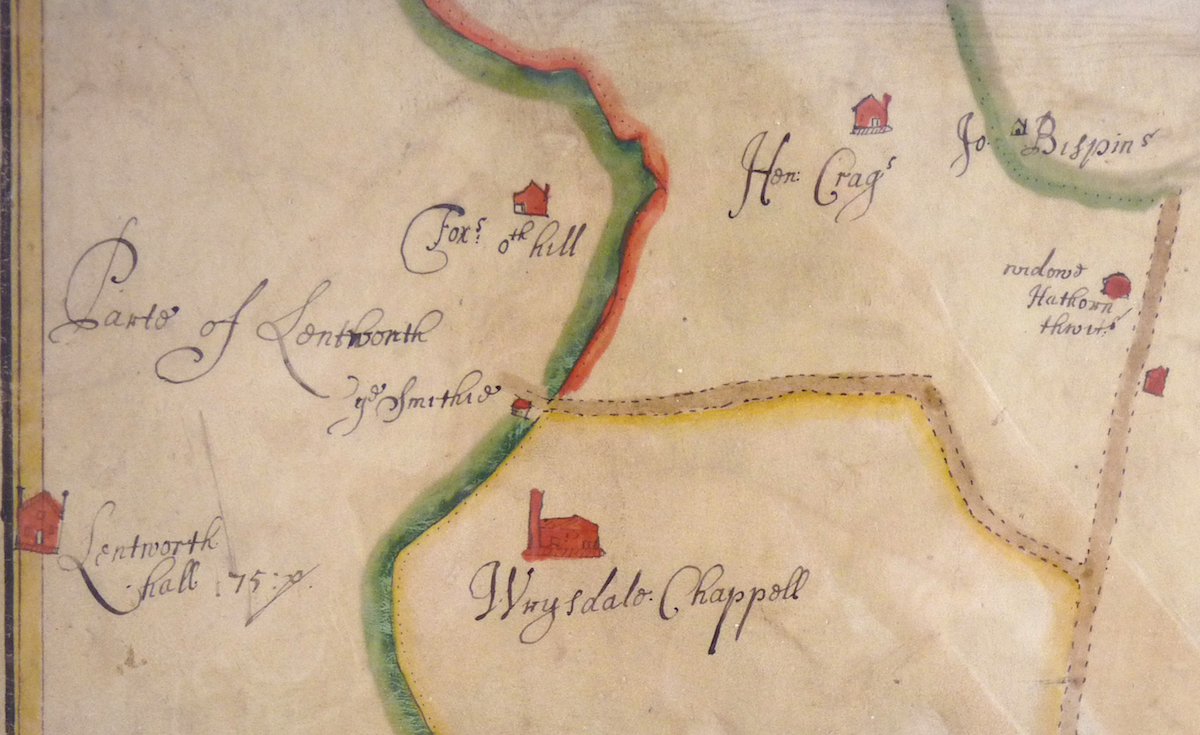 Hen: Cragˢ
Jo: Bispinˢ
Foxˢ: oᵗʰ hill
widowe
Hathorn
thwitˢ
Parte of Lentworth
yᵉ Smithie
Lentworth
hall :75:p.
Wrysdale. Chappell